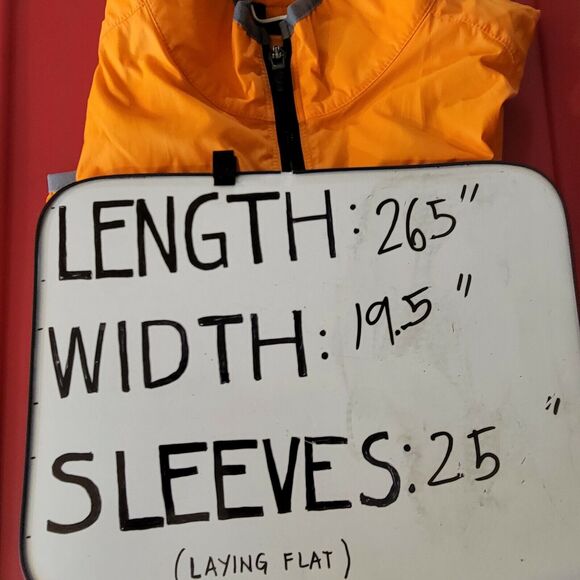 LENGTH: 265"
WIDTH: 19.5"
SLEEVES: 25"
(LAYING FLAT)